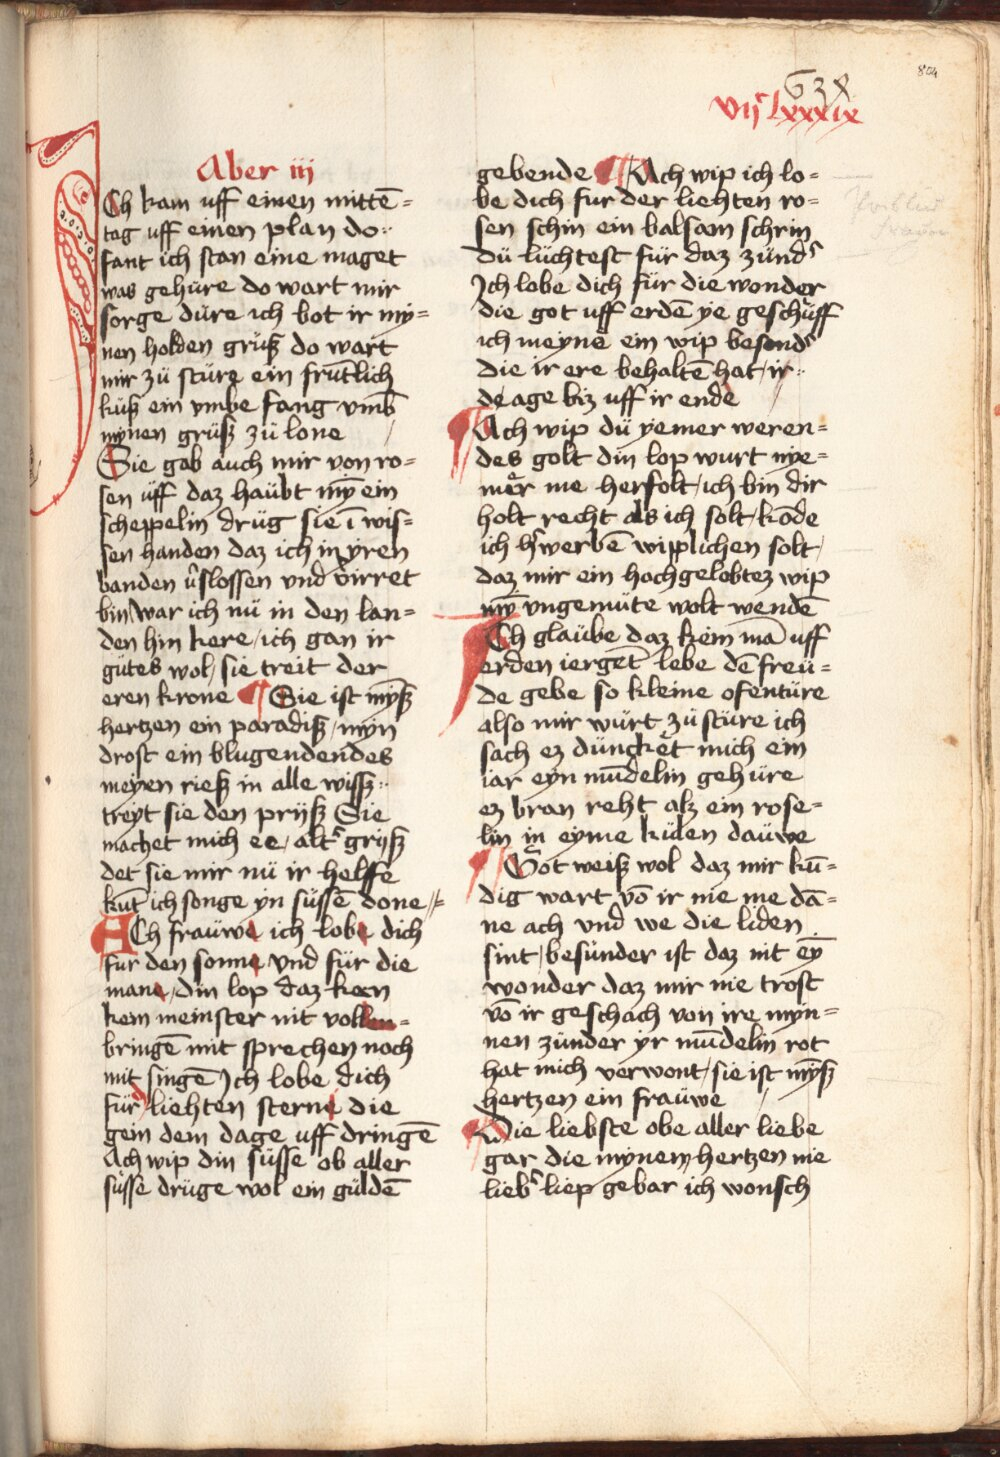 804
638
vijc lxxxix
Aber iij
ICh kam uff einen mittē=
tag uff einen plan do..
fant ich stan eine maget
was gehüre do wart mir
sorge düre ich bot ir my=
nen holden grüß do wart
mir zü stüre ein frūtlich
kuß ein vmbe fang vmb
mynen grüß zü lone
Sie gab auch mir von ro=
sen uff daz haübt mȳ ein
scheppelin drüg sie ī wis=
sen handen daz ich in yren
banden v̉slossen vnd virret
bin/war ich nü in den lan=
den hin kere/ich gan ir
gütes wol/sie treit der
eren krone ¶ Sie ist mȳß
hertzen ein paradiß/myn
drost ein blugendendes
meyen rieß in alle wiß..
treyt sie den prijß Sie
machet mich ee/alt̉ grijß
det sie mir nü ir helffe
kūt ich songe yn süssē done
ACh fraüwe ich lobe dich
für den sonne vnd für die
mane/din lop daz keen
kein meinster nit vollen=
bringē mit sprechen noch
mit singē Ich lobe dich
für liehten sterne die
gein dem dage uff dringē
Ach wip din süsse ob aller
süsse drüge wol ein güldē
gebende ¶ Ach wip ich lo=
be dich fur der liehten ro=
sen schin ein balsam schrin
dü lüchtest für daz zünd̉
Ich lobe dich für die wonder
die got uff erdē ye geschüff
ich meyne ein wip besond̉
die ir ere behaltē hat/ir..
de age biz uff ir ende
Ach wip dü yemer weren=
des golt din lop wurt nye=
mer me herfolt/ich bin dir
holt recht als ich solt/kōde
ich h̉werbē wipplichen solt/
daz mir ein hochgelobtez wip
mȳ vngemüte wolt wendē
ICh glaübe daz kein mā uff
erden iergēt lebe dē freü=
de gebe so kleine ofentüre
also mir würt zü stüre ich
sach ez düncket mich ein
iar eyn mūdelin gehüre
ez bran reht alz ein rose=
lin in eyme külen daüwe
Got weiß wol daz mir kū=
dig wart vō ir nie me dā=
ne ach vnd we die liden
sint/besünder ist daz nit eȳ
wonder daz mir nie trost
vō ir geschach von ire myn=
nen zünder yr mūdelin rot
hat mich verwont/sie ist mȳß
hertzen ein frauwe
Die liebste obe aller liebe
gar die mynem hertzen nie
lieb̉ liep gebar ich wonsch